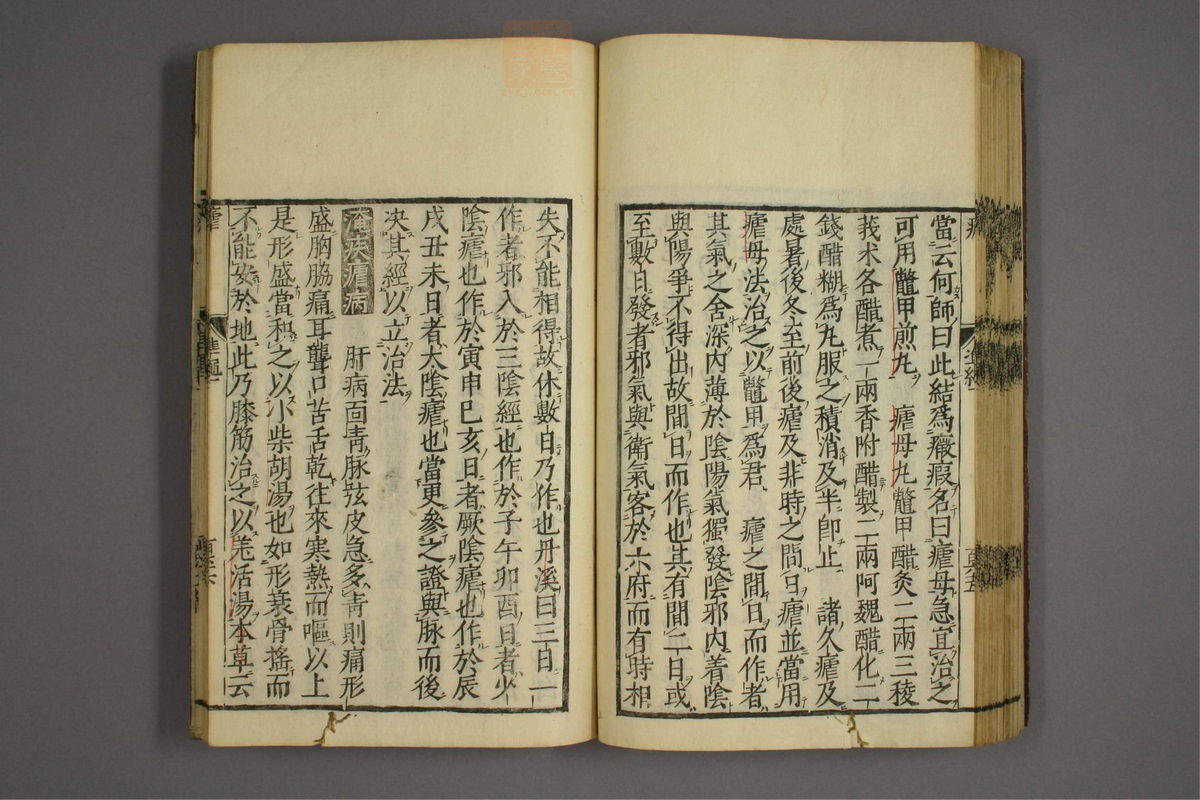 當云何師曰此結爲癥瘕名曰瘧母急宜治之
可用鼈甲煎丸　瘧母丸鼈甲醋炙二兩三稜
莪术各醋煮一兩香附醋製二兩阿魏醋化二
錢醋糊爲丸服之積消及半卽止　諸久瘧及
處暑後冬至前後瘧及非時之間日瘧並當用
瘧母法治之以鼈甲爲君　瘧之間日而作者
其氣之舍深內薄於陰陽氣獨發陰邪內着陰
與陽爭不得出故間日而作也其有間二日或
至數日發者邪氣與衛氣客於六府而有時相
失不能相得故休數日乃作也丹溪曰三日一
作者邪入於三陰經也作於子午卯酉日者少
陰瘧也作於寅申巳亥日者厥陰瘧也作於辰
戌丑未日者太陰瘧也當更參之證與脉而後
决其經以立治法
淹疾瘧病　肝病面靑脉弦皮急多靑則痛形
盛胸脇痛耳聾口苦舌乾往來寒熱而嘔以上
是形盛當和之以小柴胡湯也如形衰骨搖而
不能安於地此乃膝筋治之以羌活湯本草云